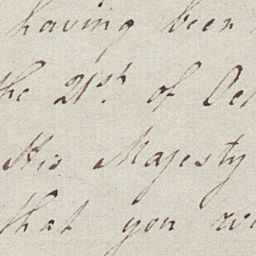 having been
the 21st. of Oct
His Majesty
that you